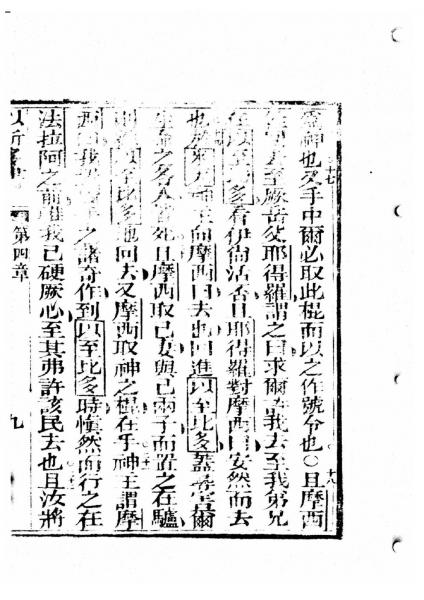 神也又手中爾必取此棍而以之作號令也○且摩西
至厥岳父耶得羅謂之曰求爾我去至我弟兄
在以至比多看伊尚活否且耶得羅對摩西曰安然而去
也神王向摩西曰去也回進以至比多蓋尋害爾
生命之各人皆死且摩西取己妻與己兩子而置之在驢
以至比多地回去又摩西取神之棍在手神王謂摩
西之諸奇作到以至比多時慎然而行之在
法拉阿之前我已硬厥心至其弗許該民去也且汝將
第四章
九
十七
十八